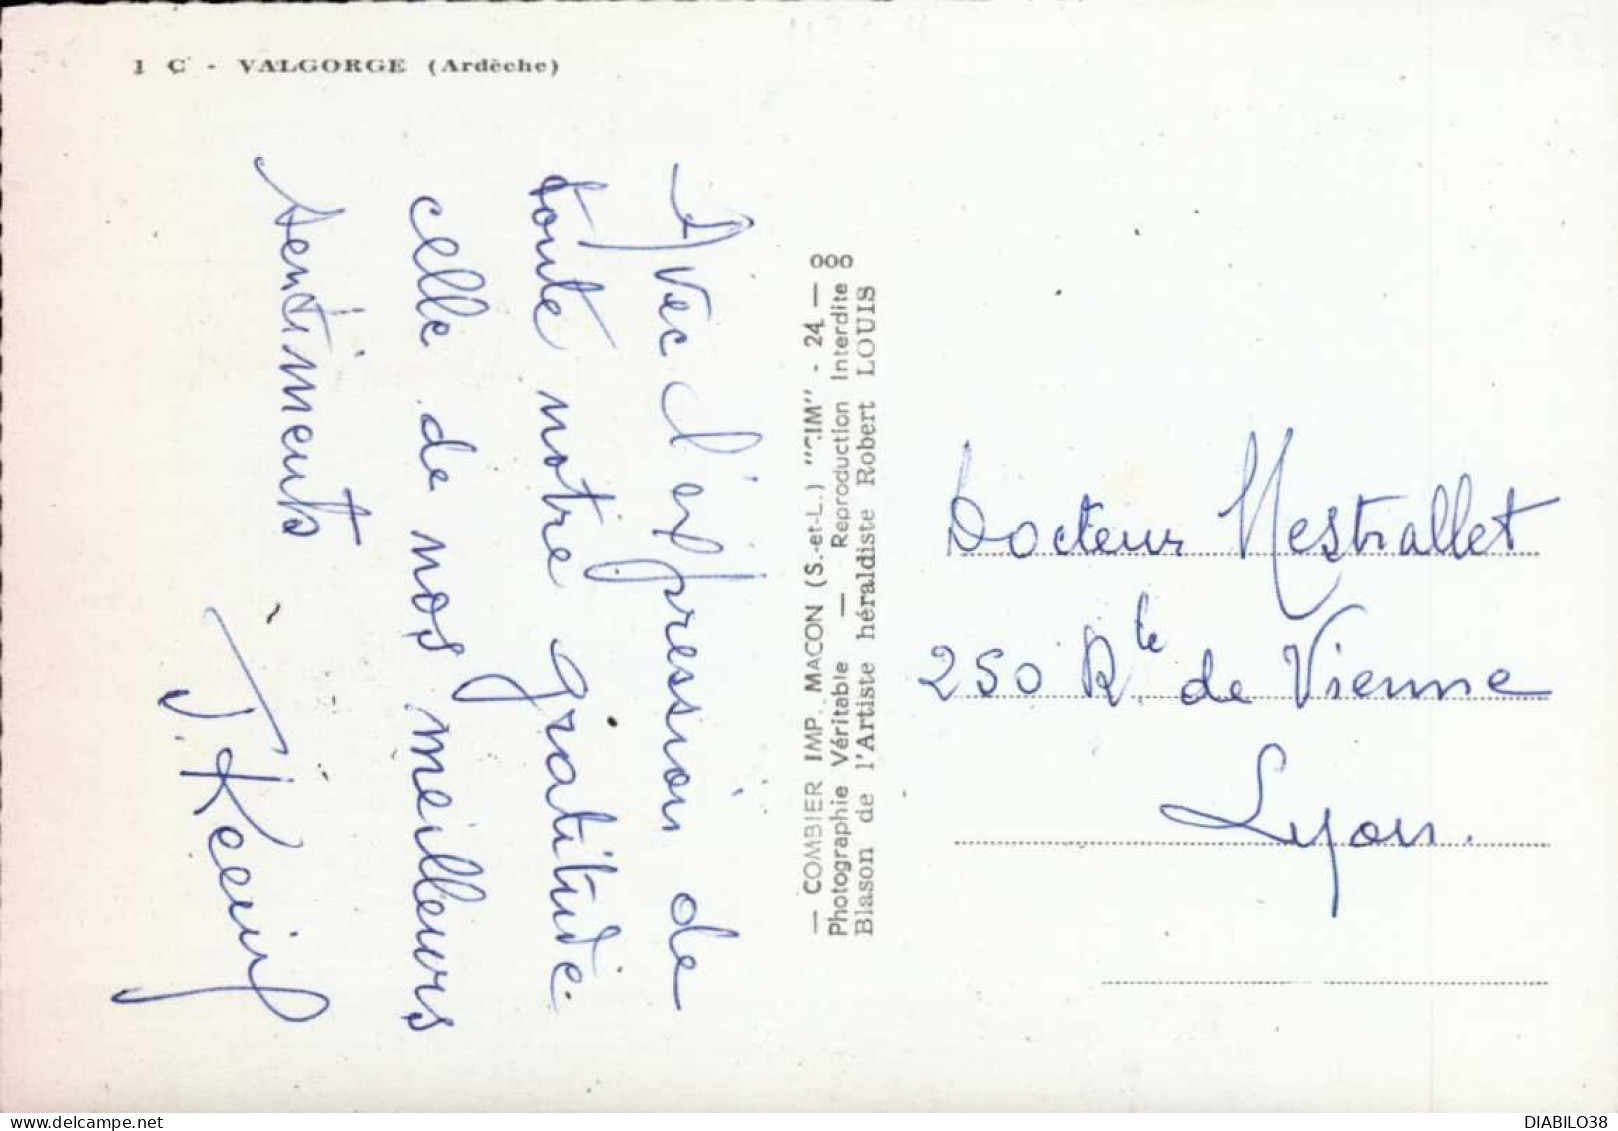 1 C - VALGORGE (Ardèche)
Avec l'expression de
toute notre gratitude
celle de nos meilleurs
sentiments
— COMBIER IMP. MACON (S.-et-L.) "CIM" - 24 —
Photographie Véritable — Reproduction Interdite
Blason de l'Artiste héraldiste Robert LOUIS
Docteur Mestrallet
250 Rte de Vienne
Lyon.
DIABILO38